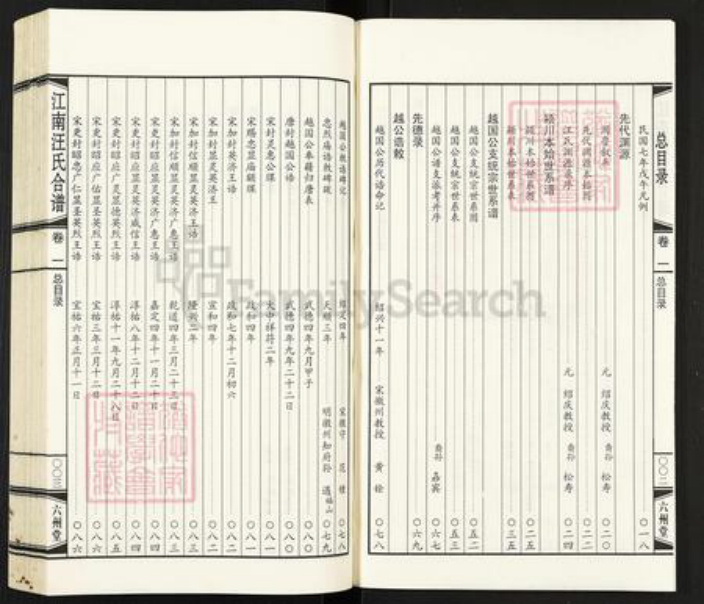 总目录
卷一
总目录
〇〇二
六州堂
民国七年戊午凡例 〇一八
先代渊源
元 绍庆教授 裔孙 松寿 〇二〇
先代渊源本始图 〇二二
江氏渊源表序 元 绍庆教授 裔孙 松寿 〇二四
颍川本始世系谱
颍川本始世系图 〇二五
颍川本始世系表 〇三五
越国公支统宗世系谱
越国公支统宗世系图 〇五二
越国公支统宗世系表 〇五三
越国公谱支派考并序 裔孙 嘉宾 〇六七
先德录 〇六九
越公诰敕
越国公历代诰命记 绍兴十一年 宋徽州教授 黄 〇七八
越国公敕诰碑记 绍定四年 宋徽守 范 〇七八
忠烈庙诰敕碑跋 天顺三年 明徽州知府孙 遇 〇七九
越国公奉籍归唐表 武德四年九月甲子 〇八〇
唐封越国公诰 武德四年九月二十二日 〇八〇
宋封灵惠公牒 大中祥符二年 〇八一
宋赐忠显庙额牒 政和四年 〇八一
宋加封英济王诰 政和七年十二月初六 〇八二
宋加封显灵英济王 宣和四年 〇八二
宋加封信顺显灵英济王诰 隆兴二年 〇八三
宋加封信顺显灵英济广惠王诰 乾道四年三月二十三日 〇八三
宋更封昭应显灵英济广惠王诰 嘉定四年十一月二十日 〇八四
宋更封昭应广灵显灵英济威信王诰 淳祐八年十二月十二日 〇八四
宋更封昭应广灵显德英烈王诰 淳祐十一年九月二十八日 〇八五
宋更封昭应广佑显圣英烈王诰 宝祐三年三月十二日 〇八六
宋更封昭忠广仁显圣英烈王诰 宝祐六年正月十一日 〇八六
江南汪氏合谱
卷一
总目录
〇〇三
六州堂
FamilySearch